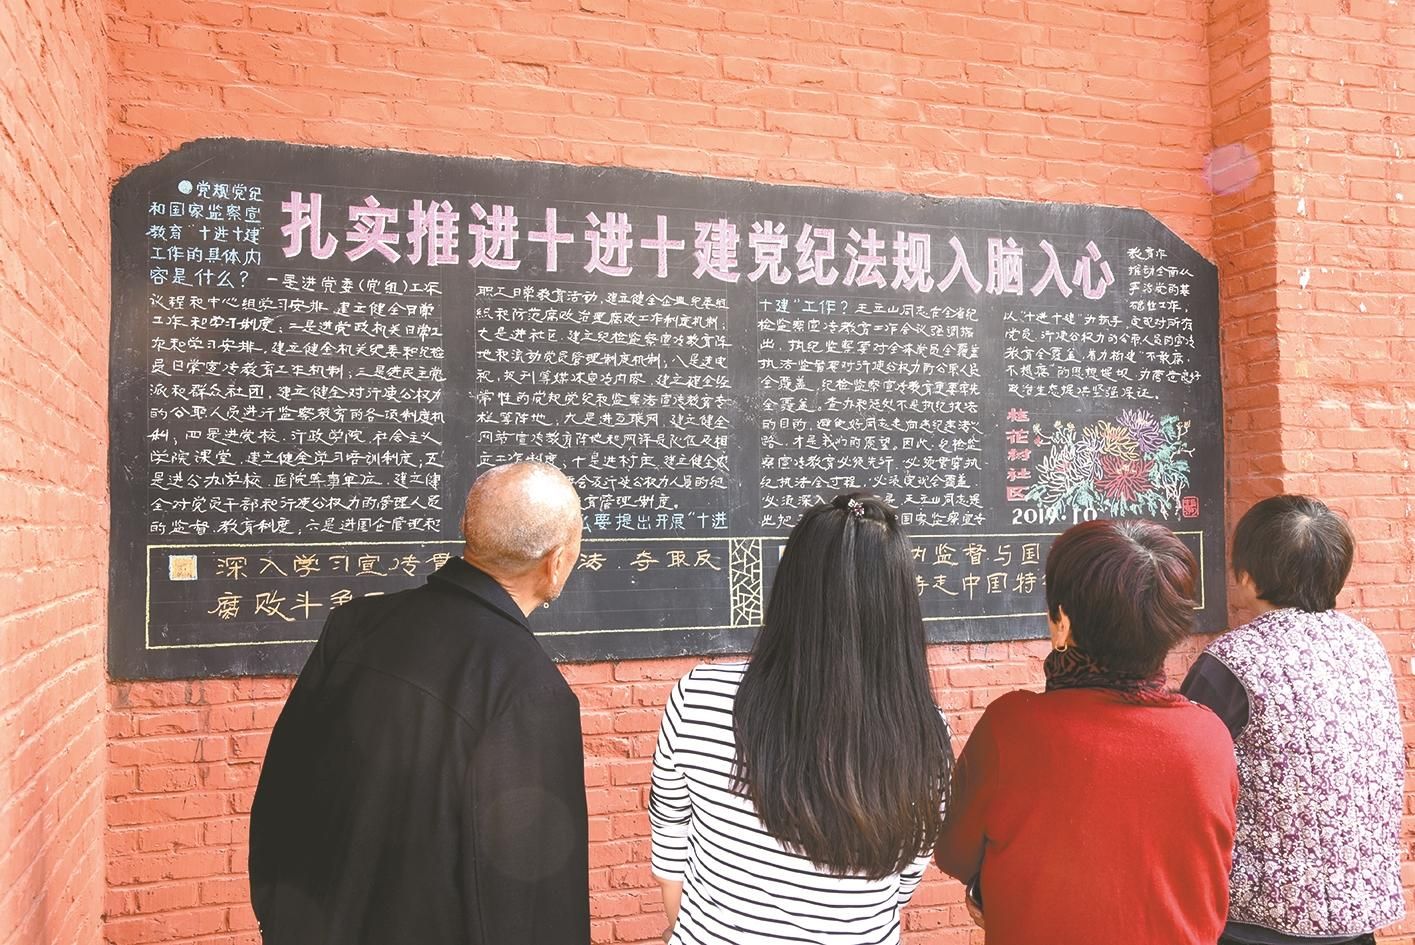 扎实推进十进十建党纪法规入脑入心
●党规党纪
和国家监察宣
教育“十进十建”
工作的具体内
容是什么？一是进党委(党组)工作
议程和中心组学习安排，建立健全日常
工作和学习制度；二是进党政机关日常工
作和学习安排，建立健全机关纪委和纪检
员日常宣传教育工作机制；三是进民主党
派和群众社团，建立健全对行使公权力
的公职人员进行监察教育的各项制度机
制；四是进党校、行政学院、社会主义
学院课堂，建立健全学习培训制度；五
是进公办学校、医院等事业单位，建立健
全对党员干部和行使公权力的管理人员
的监督、教育制度；六是进国企管理和
职工日常教育活动，建立健全企业纪委组
织和防范腐败治理腐败工作制度机制；
七是进社区，建立纪检监察宣传教育阵
地和流动党员管理制度机制；八是进电
视、报刊等媒体宣传内容，建立健全经
常性的党规党纪和监察法宣传教育专
栏等阵地；九是进互联网，建立健全
网节宣传教育阵地和网评员队伍及相
定工作制度；十是进村庄，建立健全农
会及行使公权力人员的纪
育管理制度。
么要提出开展“十进
十建”工作？王立山同志在全省纪
检监察宣传教育工作会议强调指
出，执纪监察要对全体党员全覆盖
执法监督要对行使公权力的公职人员
全覆盖，纪检监察宣传教育更要率先
全覆盖。查办和惩处不是执纪执法
的目的，避免好同志走向违纪违法之
路，才是我们的愿望。因此，纪检监
察宣传教育必须先行，必须贯穿执
纪执法全过程，必须实现全覆盖，
必须深入
是王立山同志提
出把
国家监察宣传
教育作
推动全面从
严治党的基
础性工作，
以“十进十建”为抓手，实现对所有
党员、行使公权力的公职人员的宣传
教育全覆盖，着力构建“不敢腐、
不想腐”的思想堤坝，为营造良好
政治生态提供坚强保证。
桂花村社区
2019.10
深入学习宣传贯
法，夺取反
腐败斗争
内监督与国
持走中国特